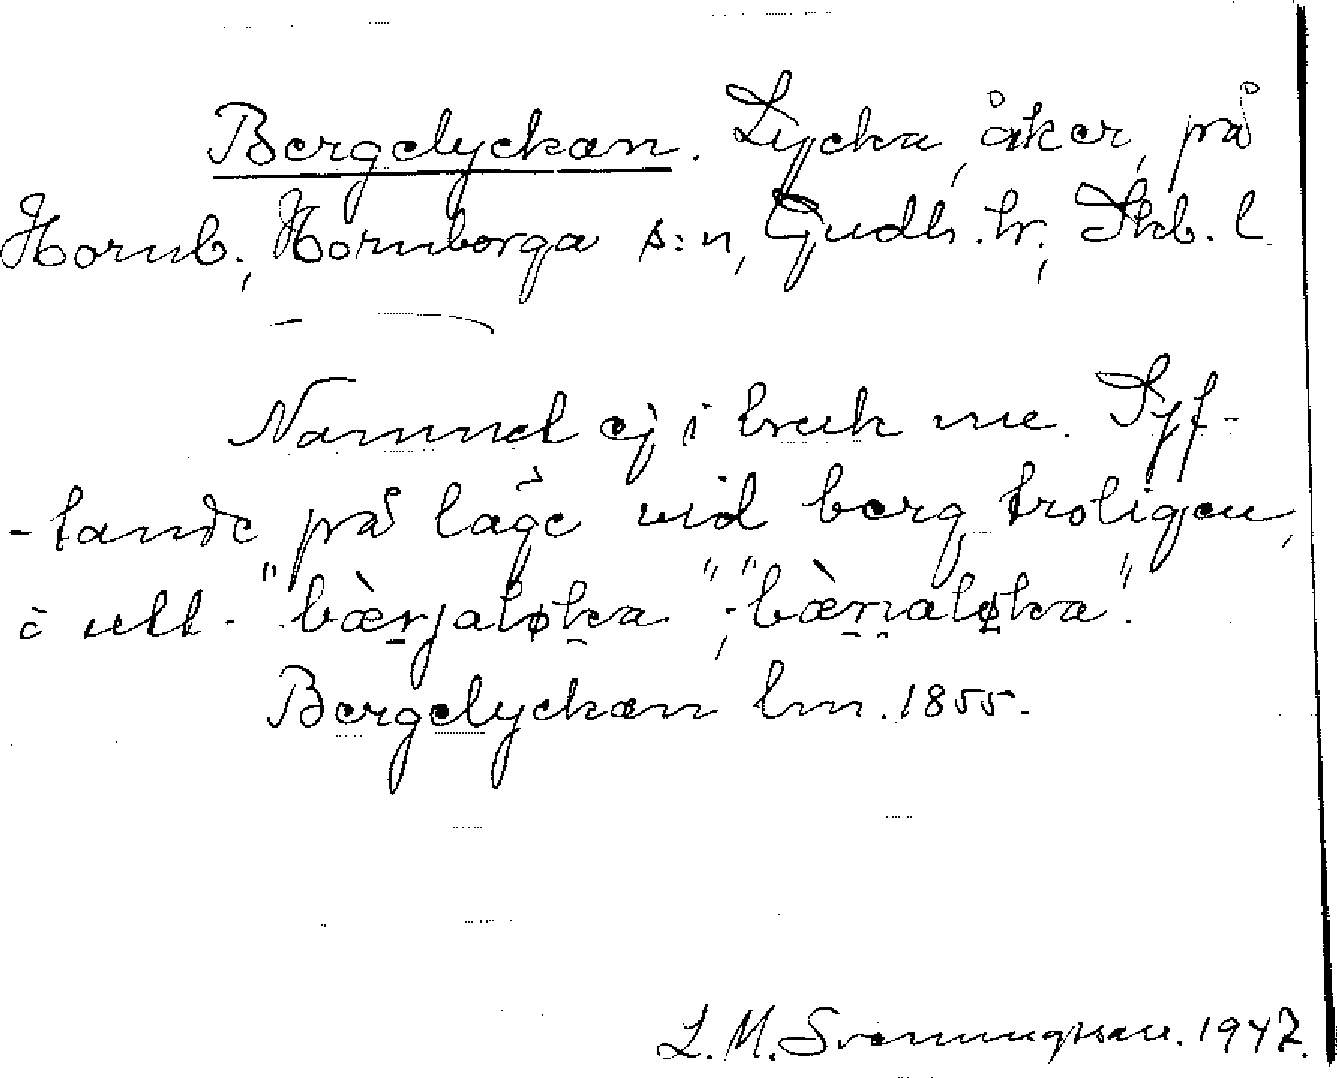 Bergelyckan. Lycka, åker, på
Hornb., Hornborga s:n, Gudh. hr, Skb. l.
Namnet ej i bruk nu. Syf-
-tande på läge vid berg, troligen,
i utt. "bærjaløka"; "bærjaløka".
Bergelyckan lm. 1855.
L. M. Svenungsson. 1947.